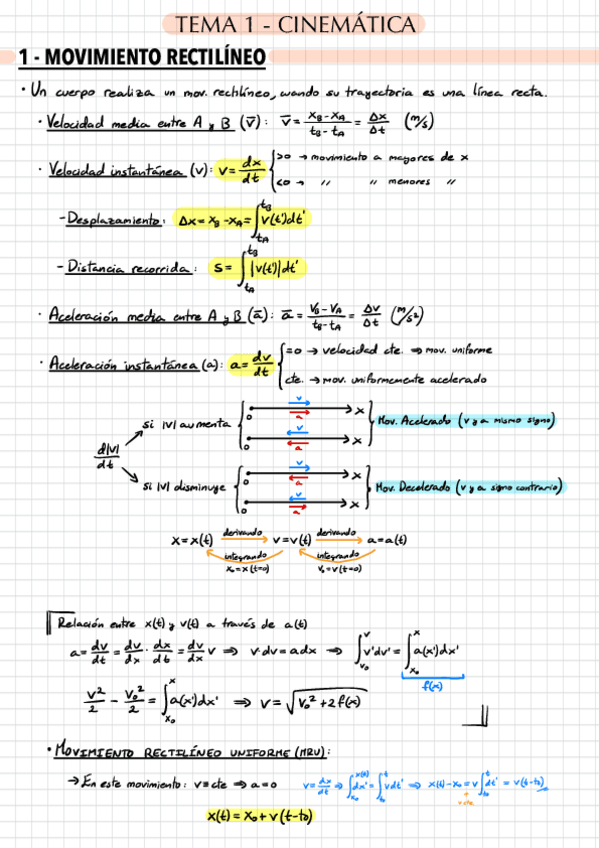 TEMA 1 - CINEMÁTICA
1 - MOVIMIENTO RECTILÍNEO
· Un cuerpo realiza un mov. rectilíneo, cuando su trayectoria es una línea recta.
· Velocidad media entre A y B (v̅): v̅ = (x_B - x_A)/(t_B - t_A) = Δx/Δt (m/s)
· Velocidad instantánea (v): v = dx/dt { >0 → movimiento a mayores de x
<0 → " " menores "
- Desplazamiento: Δx = x_B - x_A = ∫_{t_A}^{t_B} v(t')dt'
- Distancia recorrida: s = ∫_{t_A}^{t_B} |v(t')|dt'
· Aceleración media entre A y B (a̅): a̅ = (v_B - v_A)/(t_B - t_A) = Δv/Δt (m/s²)
· Aceleración instantánea (a): a = dv/dt { =0 → velocidad cte. ⇒ mov. uniforme
cte. → mov. uniformemente acelerado
d|v|/dt
si |v| aumenta { 0 v a x
0 v a x } Mov. Acelerado (v y a mismo signo)
si |v| disminuye { 0 v a x
0 v a x } Mov. Decelerado (v y a signo contrario)
x = x(t) derivando v = v(t) derivando a = a(t)
integrando integrando
x₀ = x(t=0) v₀ = v(t=0)
Relación entre x(t) y v(t) a través de a(t)
a = dv/dt = dv/dx · dx/dt = dv/dx v ⇒ v·dv = a dx ⇒ ∫_{v₀}^{v} v'dv' = ∫_{x₀}^{x} a(x')dx'
f(x)
v²/2 - v₀²/2 = ∫_{x₀}^{x} a(x')dx' ⇒ v = √(v₀² + 2f(x))
· MOVIMIENTO RECTILÍNEO UNIFORME (MRU):
→ En este movimiento: v ≡ cte ⇒ a = 0 v = dx/dt ⇒ ∫_{x₀}^{x(t)} dx' = ∫_{t₀}^{t} vdt' ⇒ x(t) - x₀ = v ∫_{t₀}^{t} dt' = v(t-t₀)
v cte.
x(t) = x₀ + v(t-t₀)